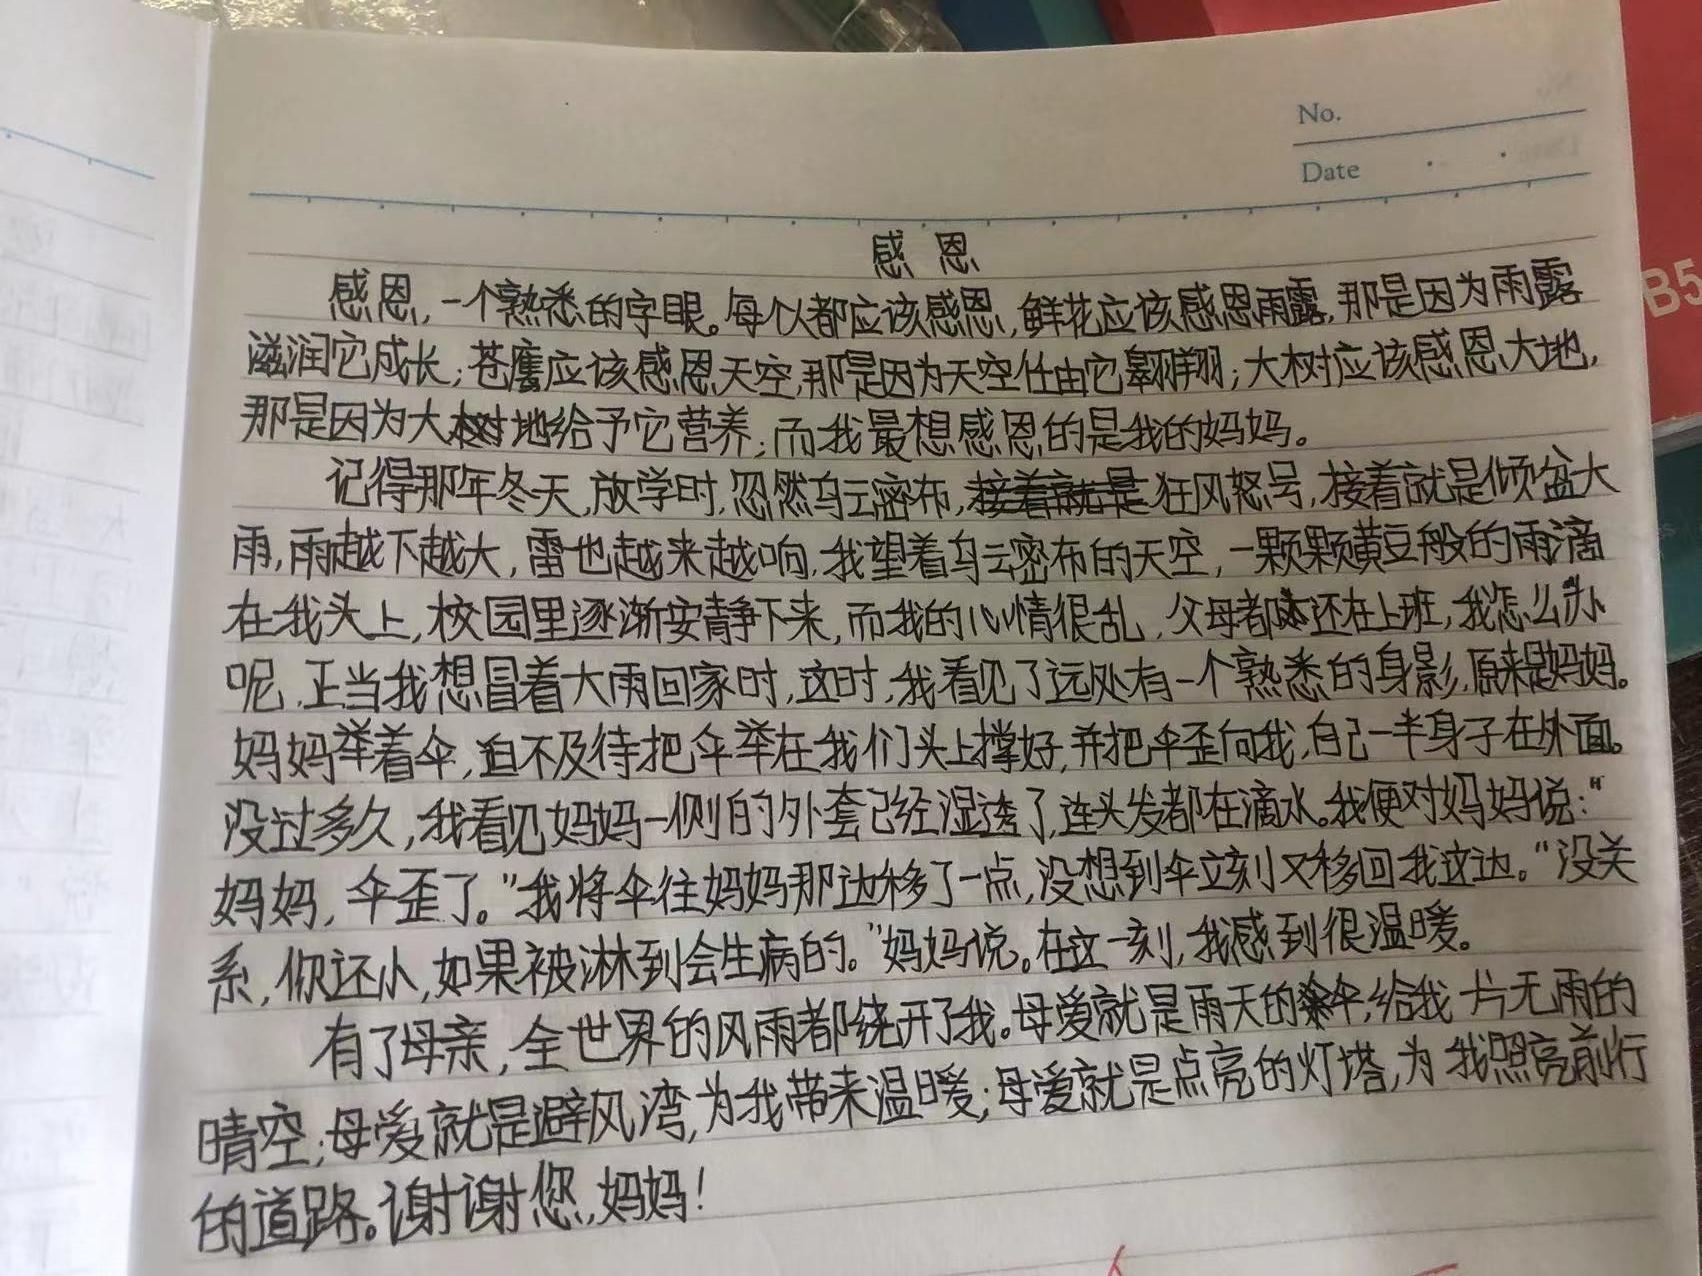 No.
Date
B5
感恩
感恩,一个熟悉的字眼。每个人都应该感恩,鲜花应该感恩雨露,那是因为雨露
滋润它成长;苍鹰应该感恩天空,那是因为天空任由它翱翔;大树应该感恩大地,
那是因为大地给予它营养;而我最想感恩的是我的妈妈。
记得那年冬天,放学时,忽然乌云密布,狂风怒号,接着就是倾盆大
雨,雨越下越大,雷也越来越响,我望着乌云密布的天空,一颗颗黄豆般的雨滴
在我头上,校园里逐渐安静下来,而我的心情很乱,父母都还在上班,我怎么办
呢,正当我想冒着大雨回家时,这时,我看见了远处有一个熟悉的身影,原来是妈妈。
妈妈举着伞,迫不及待把伞举在我们头上撑好,并把伞歪向我,自己一半身子在外面。
没过多久,我看见妈妈一侧的外套已经湿透了,连头发都在滴水。我便对妈妈说:“
妈妈,伞歪了。”我将伞往妈妈那边移了一点,没想到伞立刻又移回我这边。“没关
系,你还小,如果被淋到会生病的。”妈妈说。在这一刻,我感到很温暖。
有了母亲,全世界的风雨都绕开了我。母爱就是雨天的伞,给我一片无雨的
晴空;母爱就是避风湾,为我带来温暖;母爱就是点亮的灯塔,为我照亮前行
的道路。谢谢您,妈妈!